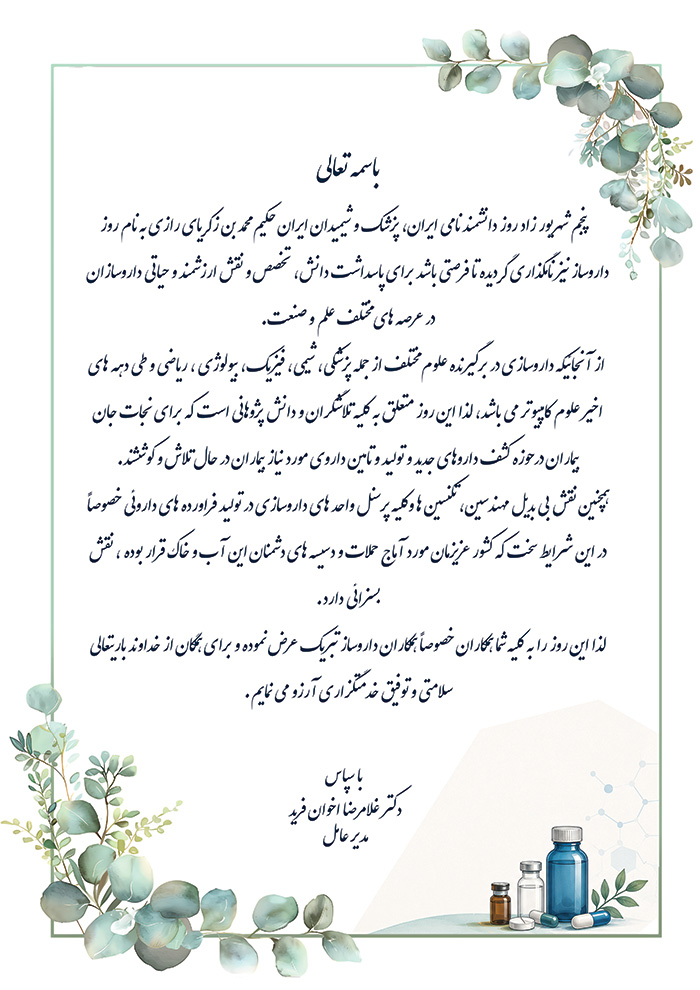 باسمه تعالی
پنجم شهریور زاد روز دانشمند نامی ایران، پزشک و شیمیدان ایران حکیم محمد بن زکریای رازی به نام روز
داروساز نیز نامگذاری گردیده تا فرصتی باشد برای پاسداشت دانش، تخصص و نقش ارزشمند و حیاتی داروسازان
در عرصه های مختلف علم و صنعت.
از آنجائیکه داروسازی در برگیرنده علوم مختلف از جمله پزشکی، شیمی، فیزیک، بیولوژی، ریاضی و طی دهه های
اخیر علوم کامپیوتر می باشد، لذا این روز متعلق به کلیه تلاشگران و دانش پژوهانی است که برای نجات جان
بیماران در حوزه کشف داروهای جدید و تولید و تامین داروی مورد نیاز بیماران در حال تلاش و کوششند.
همچنین نقش بی بدیل مهندسین، تکنسین ها و کلیه پرسنل واحد های داروسازی در تولید فراورده های داروئی خصوصاً
در این شرایط سخت که کشور عزیزمان مورد آماج حملات و دسیسه های دشمنان این آب و خاک قرار بوده، نقش
بسزائی دارد.
لذا این روز را به کلیه شما همکاران خصوصاً همکاران داروساز تبریک عرض نموده و برای همگان از خداوند باریتعالی
سلامتی و توفیق خدمتگزاری آرزو می نمایم.
با سپاس
دکتر غلامرضا اخوان فرید
مدیر عامل